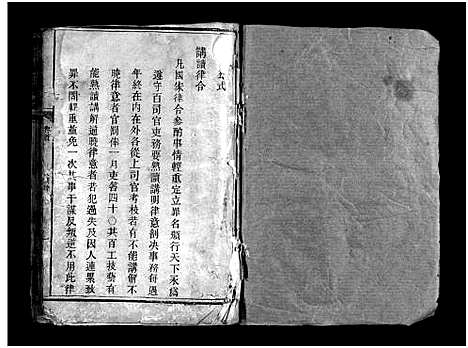 公式
講讀律令
凡國宋律令參酌事情輕重定立罪名頒行天下永爲
遵守百司官吏務要熟讀講明律意剖决事務每遇
年終在內在外各從上司官考校若有不能講解不
曉律意者官罰俸一月吏笞四十○其百工技藝有
能熟讀講解通曉律意者若犯過失及因人連累致
罪不問輕重並免一次其事干謀反叛逆不用此律